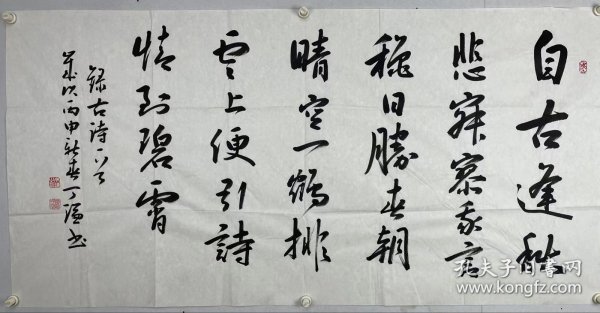 自古逢秋
悲寂寥我言
秋日勝春朝
晴空一鶴排
雲上便引詩
情到碧霄
錄古詩一首
歲次丙申新春丁謙书
孔夫子旧书网
www.kongfz.com